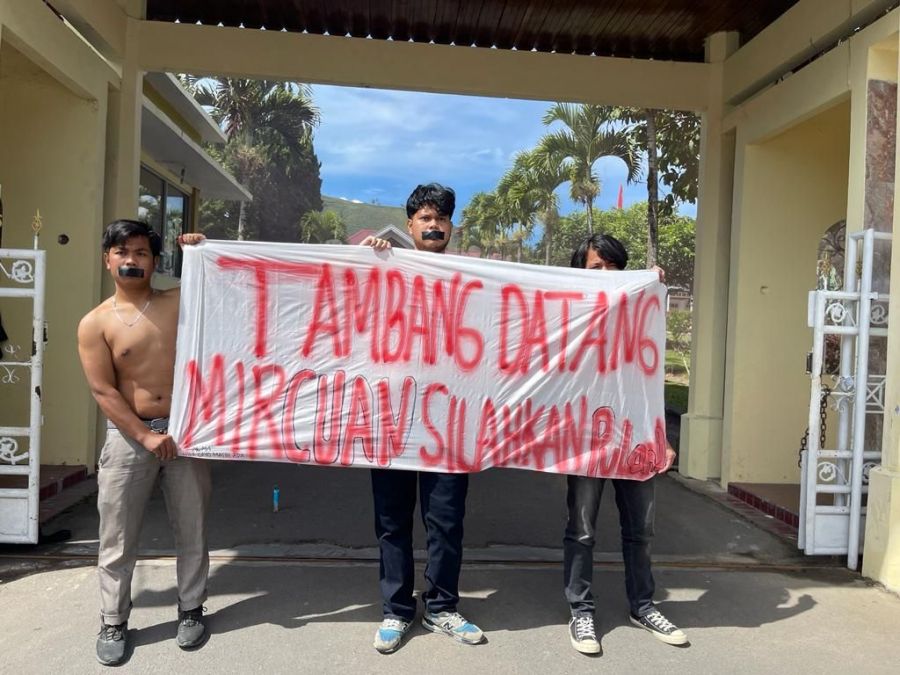 TAMBANG DATANG
MIRCUAN SILAHKAN Pulang